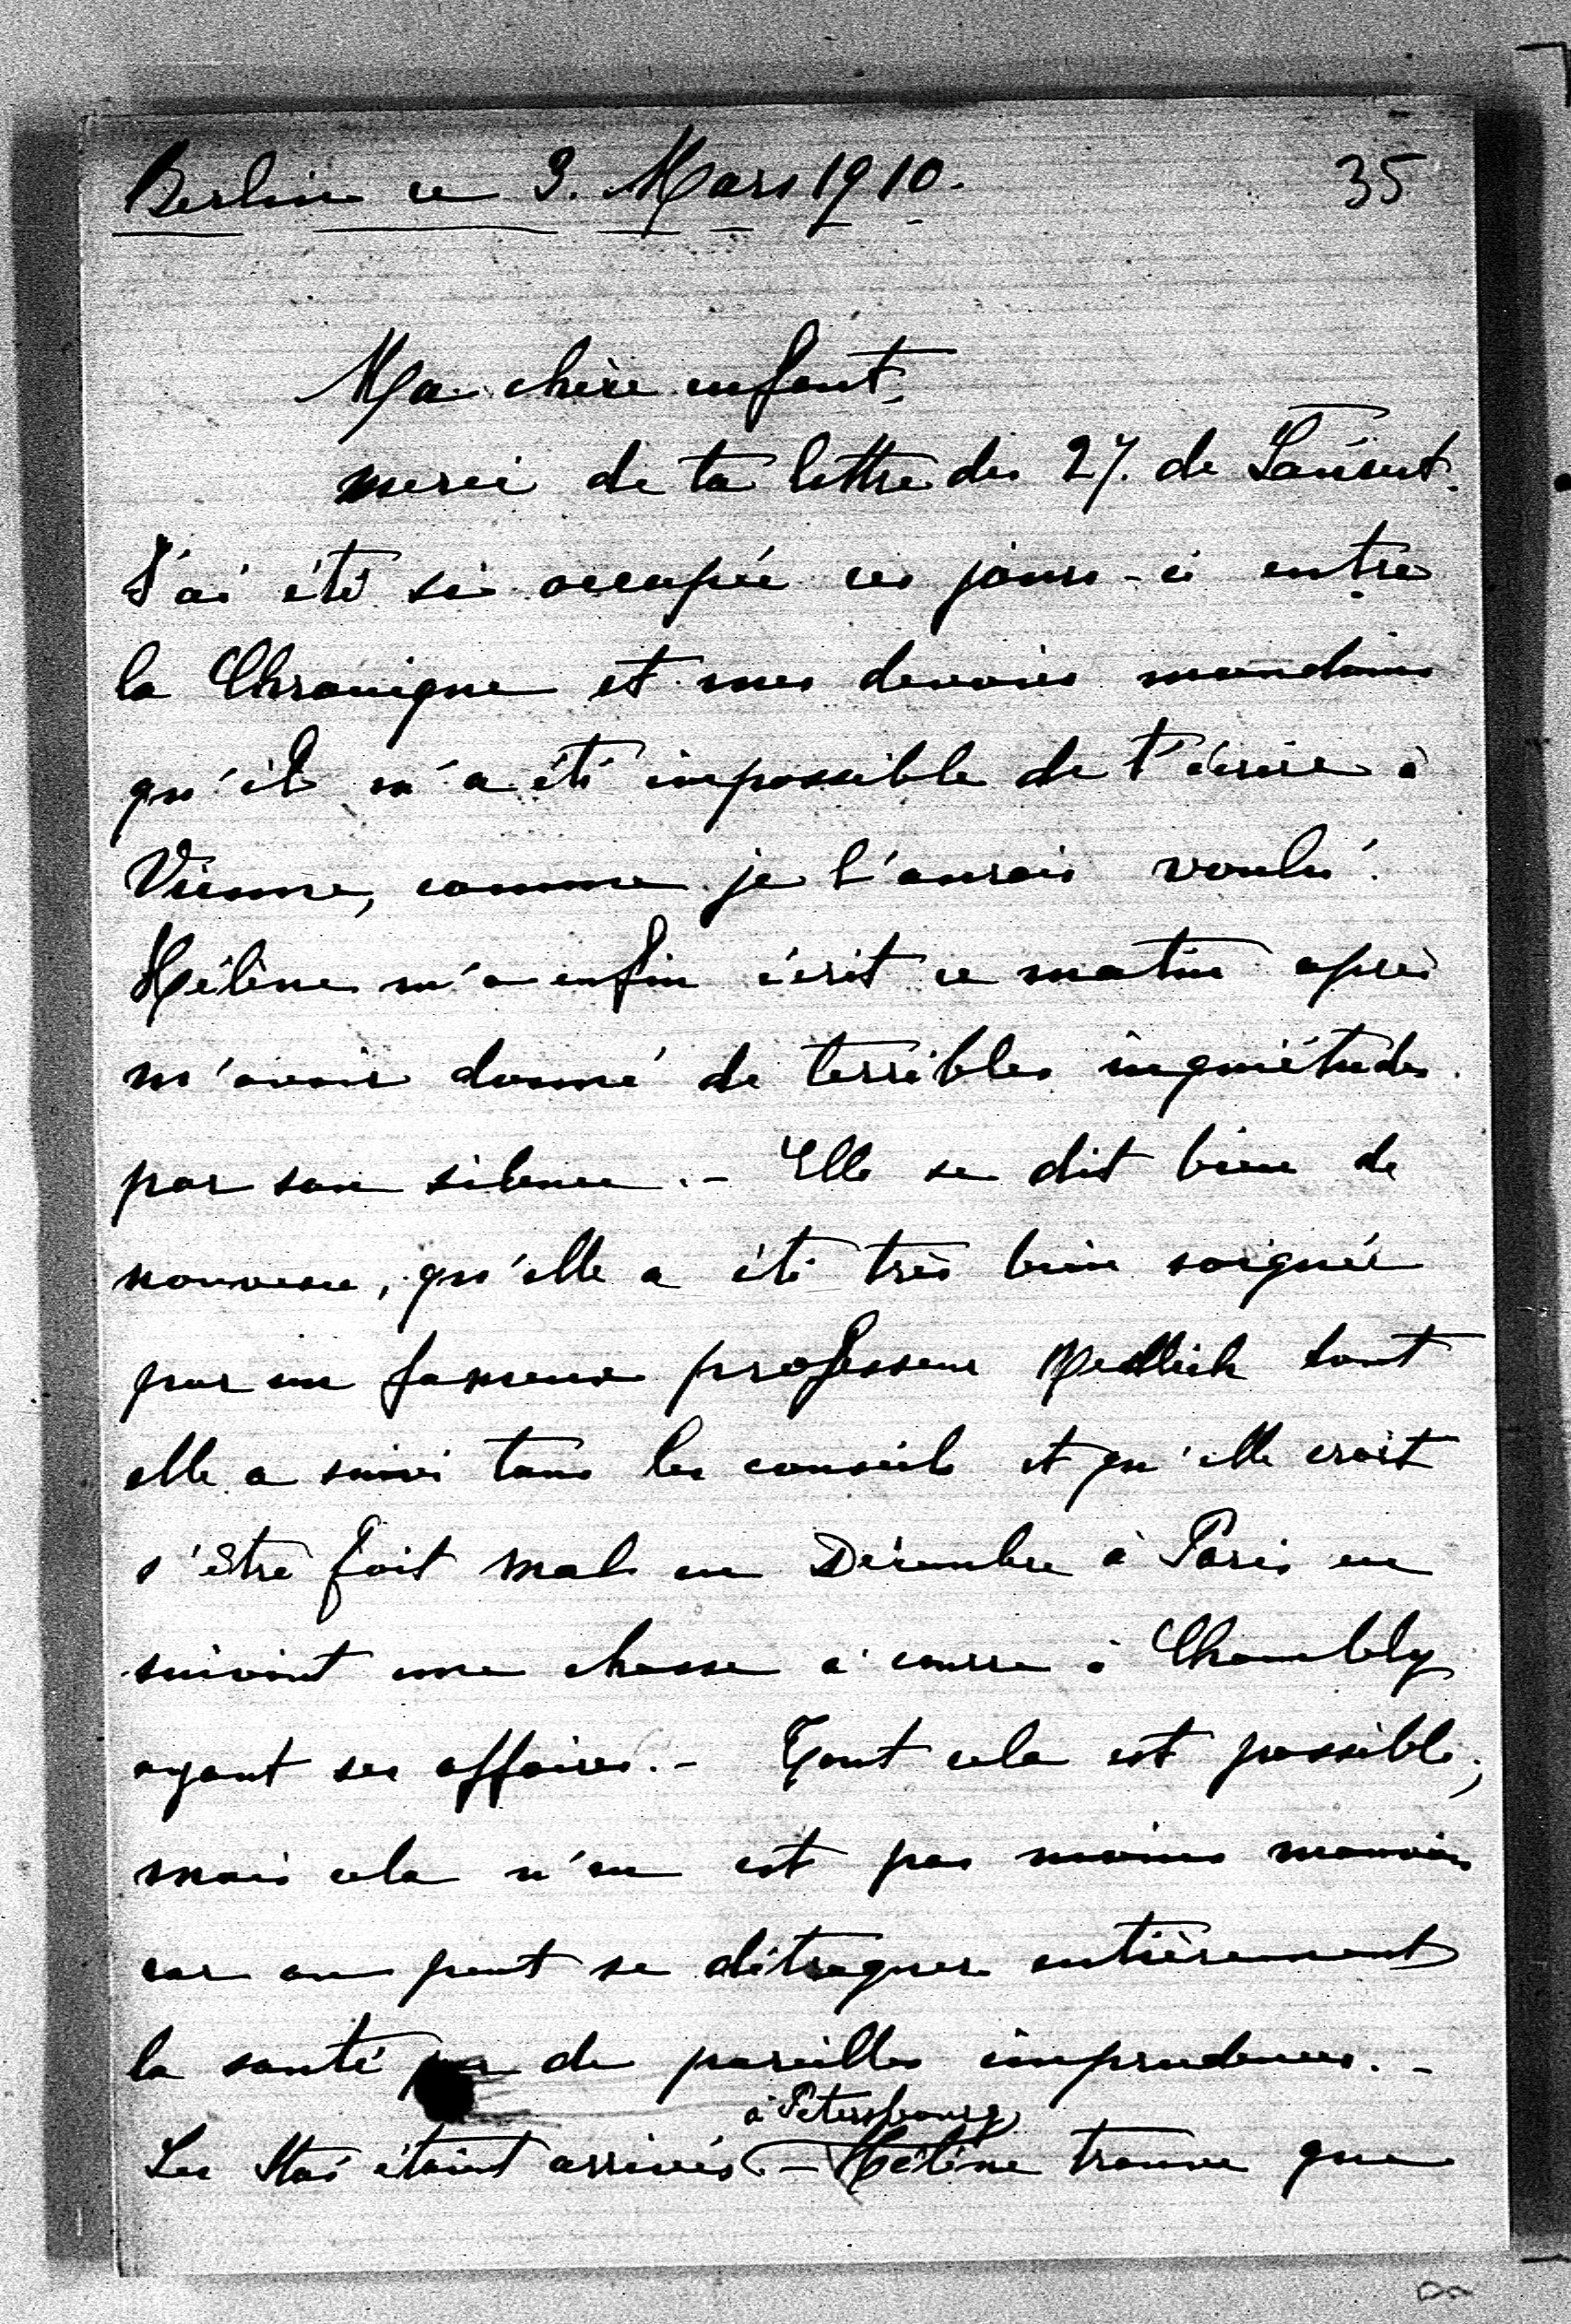 Berlin ce 3. Mars 1910.
35
Ma chère enfant,
merci de ta lettre du 27. de Lańcut.
J'ai été si occupée ces jours-ci entre
la Chronique et mes devoirs mondains
qu'il m'a été impossible de t'écrire à
Vienne, comme je l'aurais voulu.
Hélène m'a enfin écrit ce matin après
m'avoir donné de terribles inquiétudes
par son silence. - Elle se dit bien de
nouveau, qu'elle a été très bien soignée
par un fameux professeur dont
elle a suivi tous les conseils et qu'elle croit
s'être fait mal en Décembre à Paris en
suivant une chasse à courre à Chambly
ayant ses affaires. - Tout cela est possible,
mais cela n'en est pas moins mauvais
car on peut se détraquer entièrement
la santé par de pareilles imprudences. -
à Pétersbourg
Les étaient arrivés. - Hélène trouve que